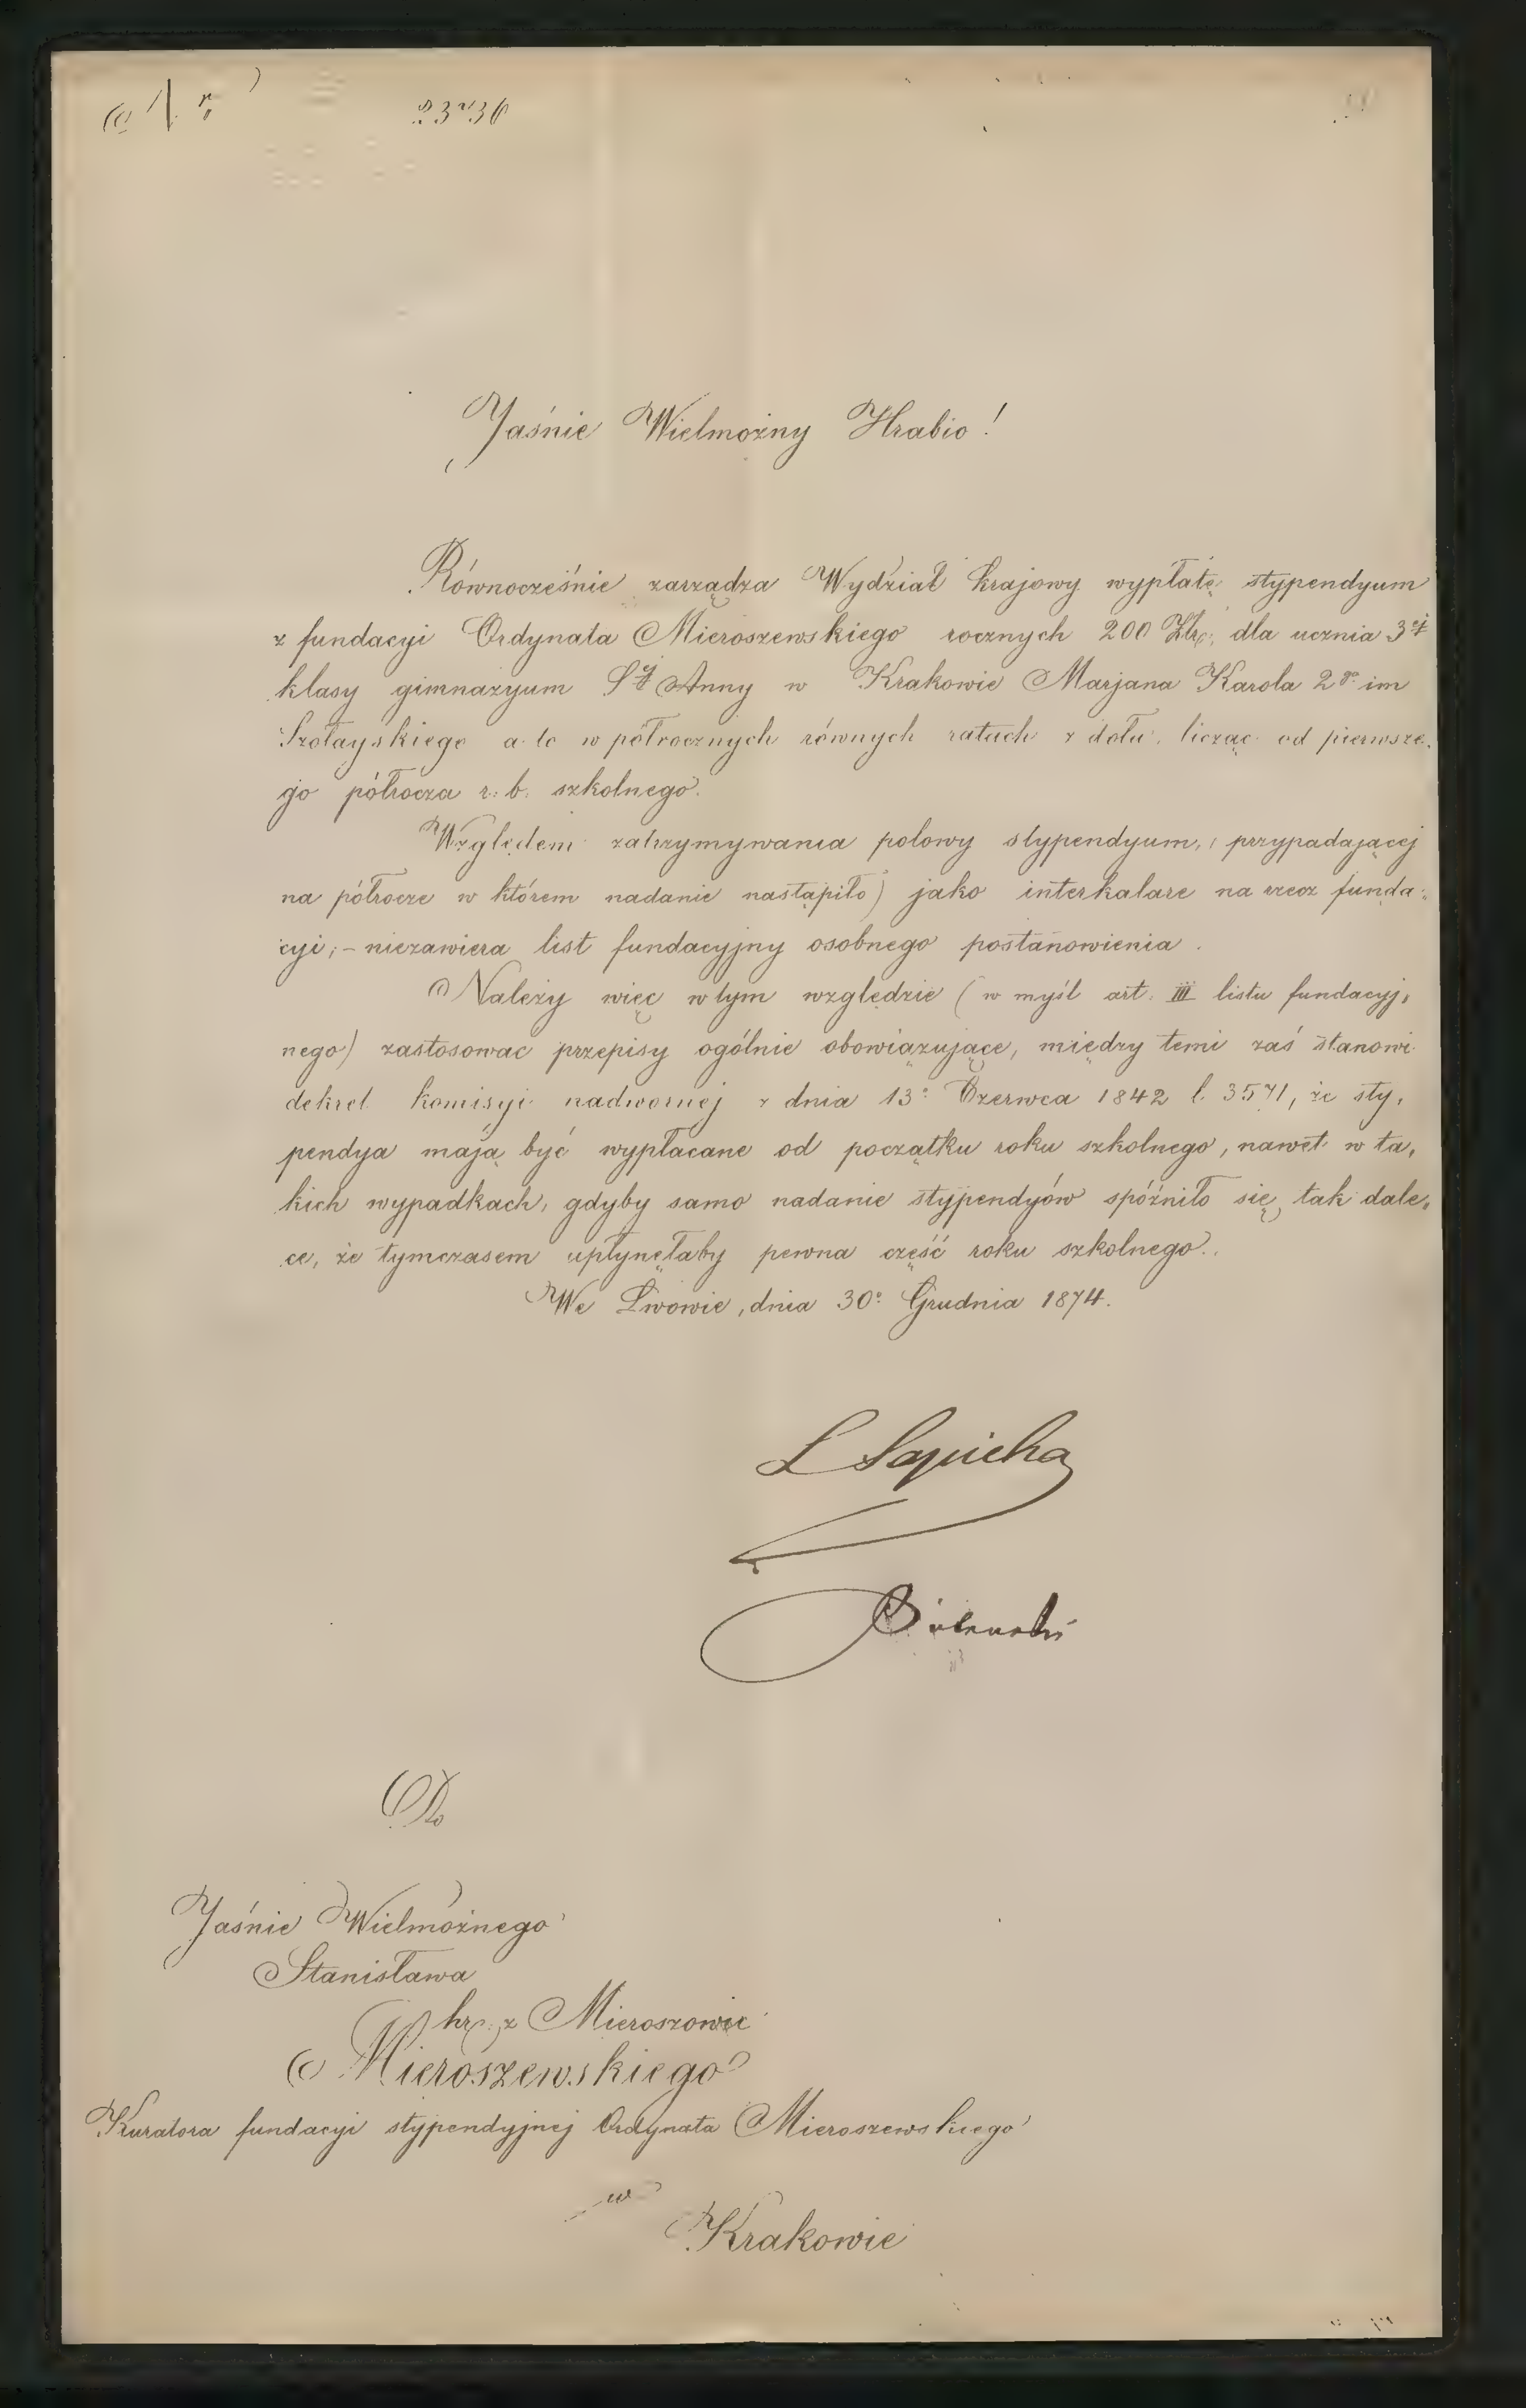 Jaśnie Wielmożny Hrabio!
Równocześnie zarządza Wydział krajowy wypłatę stypendyum
z fundacyi Ordynata Mieroszewskiego rocznych 200 Złr. dla ucznia 3ej
klasy gimnazyum Sej Anny w Krakowie Marjana Karola 2go im
Szołayskiego a to w półrocznych równych ratach z dołu, licząc od pierwsze-
go półrocza r. b. szkolnego.
Względem zatrzymywania połowy stypendyum, (przypadającej
na półrocze w którem nadanie nastąpiło) jako interkalare na rzecz funda-
cyi, – niezawiera list fundacyjny osobnego postanowienia.
Należy więc w tym względzie (w myśl art. III listu fundacyj-
nego) zastosować przepisy ogólnie obowiązujące, między temi zaś stanowi
dekret komisyi nadwornej z dnia 13o Czerwca 1842 l. 3571, że sty-
pendya mają być wypłacane od początku roku szkolnego, nawet w ta-
kich wypadkach, gdyby samo nadanie stypendyów spóźniło się tak dale-
ce, że tymczasem upłynęłaby pewna część roku szkolnego.
We Lwowie, dnia 30o Grudnia 1874.
L Sapieha
Do
Jaśnie Wielmożnego
Stanisława
hr. z Mieroszowic
Mieroszewskiego
Kuratora fundacyi stypendyjnej Ordynata Mieroszewskiego
w
Krakowie